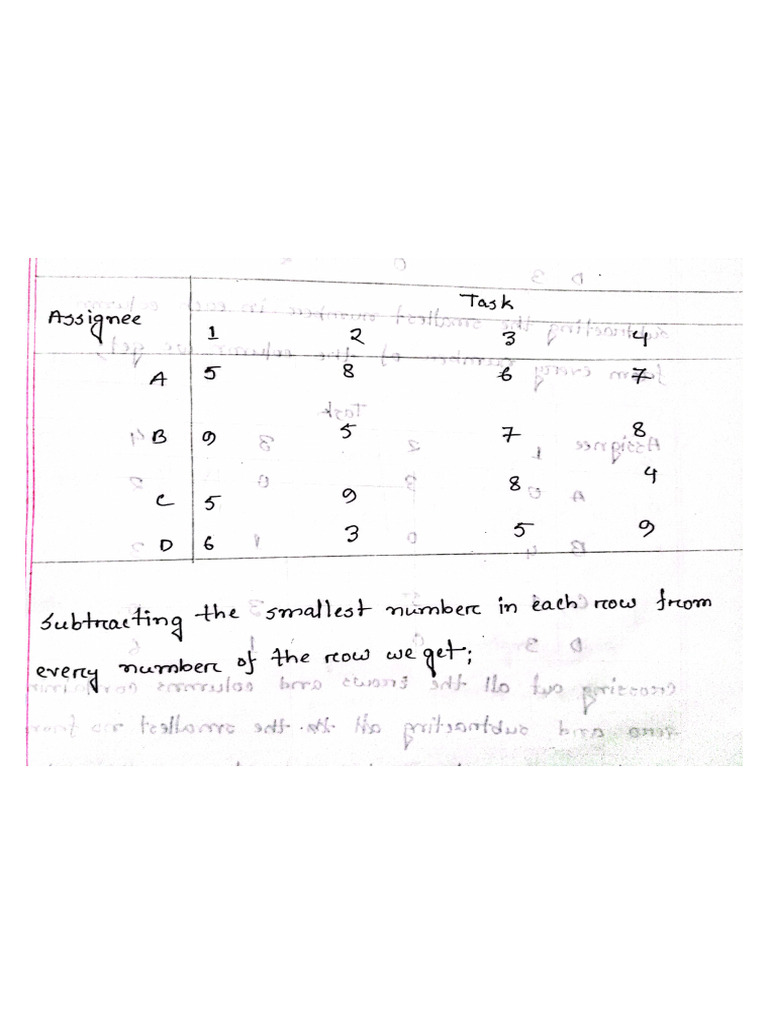 Task
Assignee 1 2 3 4
A 5 8 6 7
B 9 5 7 8
C 5 9 8 4
D 6 3 5 9
subtracting the smallest number in each row from
every number of the row we get;